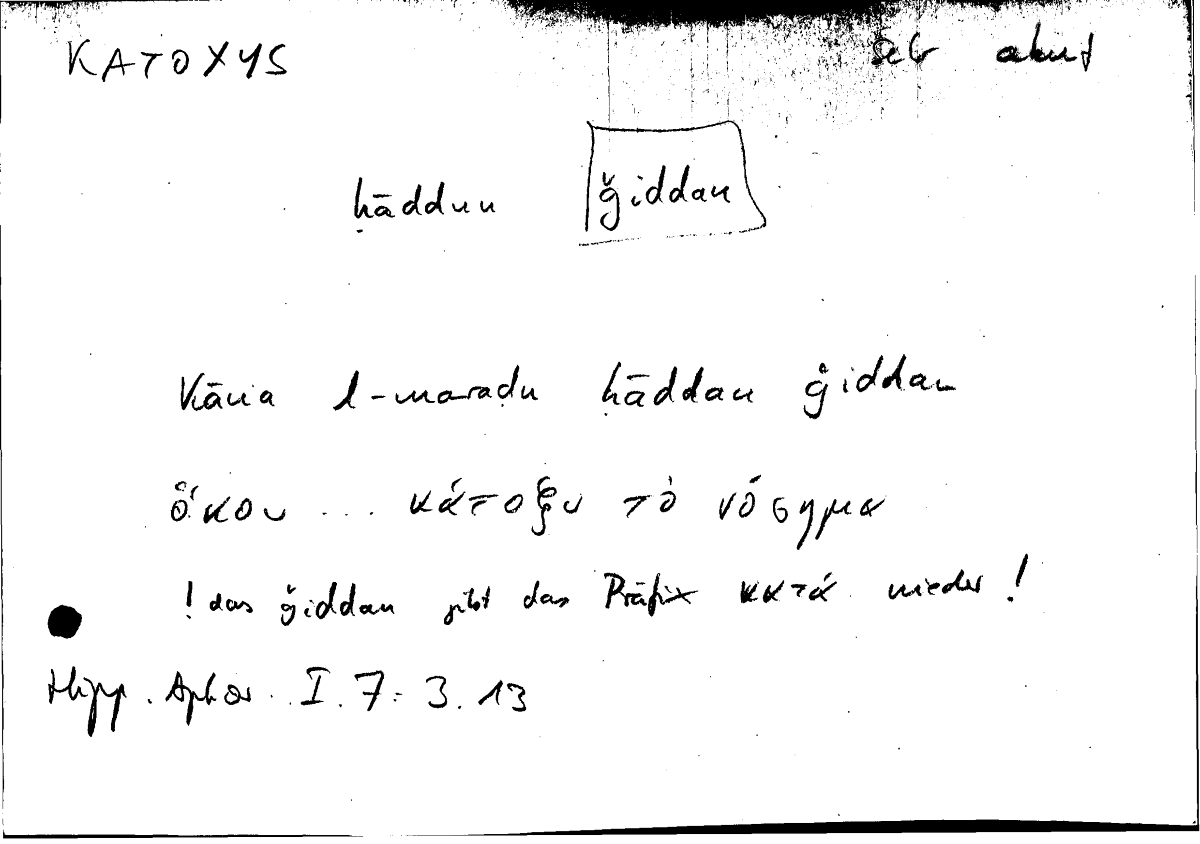 KATOXYS sehr akut
ḥāddun ǧiddan
Kāna l-maraḍu ḥāddan ǧiddan
ὅκου ... κάτοξυ τὸ νόσημα
! das ǧiddan gibt das Präfix κατά wieder !
Hipp. Aphor. I. 7: 3. 13